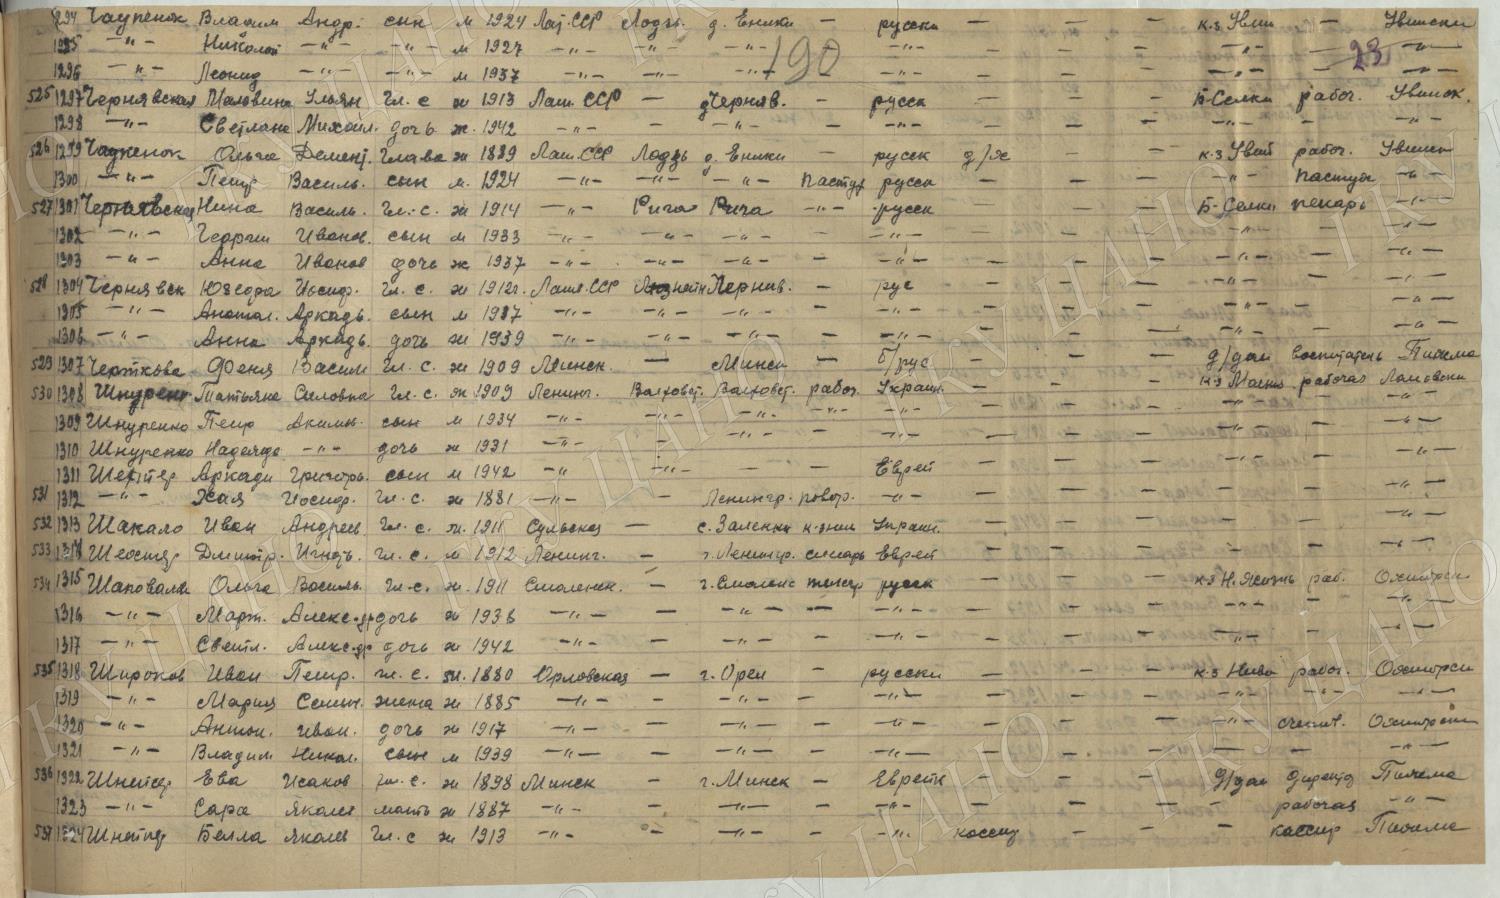 1294 Чаупенок Владим Андр. сын м 1924 Лат. ССР Лодзь. д. Еники - русски - - - к-з Уви - Увински
1295 -"- Николай -"- -"- м 1927 -"- -"- -"- -"- - - - -"- - -"-
190
23
1296 -"- Леонид -"- -"- м 1937 -"- -"- -"- -"- - - - -"- - -"-
525 1297 Чернявская Ульян. Гл. с ж 1913 Латв. ССР - д Черняв. - русск - - - Б-Селки рабоч. Увинск.
1298 -"- Светлана Михаил. дочь ж. 1942 -"- - -"- - -"- - - - -"- - -"-
526 1299 Чаупенок Ольга Демент. Глава ж 1889 Латв. ССР Лодзь д. Еники - русск д/х - - к-з Увай рабоч. Увинск
1300 -"- Петр Василь. сын м. 1924 -"- -"- -"- пастух русск - - - -"- пастух -"-
527 1301 Чернявская Нина Василь. Гл.-с. ж 1914 -"- Рига Рига -"- русск - - - Б-Селки пекарь -"-
1302 -"- Георги Иванов. сын м 1933 -"- -"- -"- - -"- - - - -"- - -"-
1303 -"- Анна Иванов дочь ж 1937 -"- -"- -"- - -"- - - - -"- - -"-
528 1304 Чернявск Юзефа Иосиф. Гл. с. ж 1912г. Латв. ССР Черняв. - рус - - - -"- - -"-
1305 -"- Анатол. Аркадь. сын м 1937 -"- -"- -"- - -"- - - - -"- - -"-
1306 -"- Анна Аркадь. дочь ж 1939 -"- - -"- - -"- - - - -"- - -"-
529 1307 Черткова Феня Васил Гл. с. ж 1909 Минск. - Минск - б/рус - - - д/дом воспитатель Пижма
530 1308 Шнуренк Татьяна Силовна Гл. с. ж 1909 Ленинг. Волховст. Волховст. рабоч. Украин. - - - рабочая
1309 Шнуренко Петр Акимов. сын м 1934 -"- -"- -"- -"- -"- - - - -"- - -"-
1310 Шнуренко Надежда -"- дочь ж 1931 -"- - -"- -"- -"- - - - -"- - -"-
1311 Аркади Григорь. сын м 1942 -"- -"- - - Еврей - - - -"- - -"-
531 1312 -"- Хая Иосиф. Гл. с. ж 1881 -"- - Ленингр. повар. -"- - - - - - -"-
532 1313 Шакало Иван Андреев. Гл. с. м. 1911 - Украин. - - - - - -"-
533 1314 Дмитр. Игнат. Гл. с. м 1912 Ленинг. - г. Ленингр. слесарь Еврей - - - - - -"-
534 1315 Шаповалов Ольга Василь. Гл.-с. ж. 1911 Смоленск. - г. Смоленск русск - - - к-з Н. Жизнь раб.
1316 -"- Марг. Алекс-др дочь ж 1938 -"- - -"- - -"- - - - -"- - -"-
1317 -"- Светл. Алекс-др дочь ж 1942 -"- - -"- - -"- - - - -"- - -"-
535 1318 Широков Иван Петр. гл. с. м. 1880 Орловская - г. Орел - русски - - - к-з Нива рабоч.
1319 -"- Мария Семен. жена ж 1885 -"- - -"- - -"- - - - -"- -"- -"-
1320 -"- Антон. Иван. дочь ж 1917 -"- - -"- - -"- - - - -"- счетов.
1321 -"- Владим Никол. сын м 1939 -"- - -"- - -"- - - - -"- - -"-
536 1322 Шнейдер Ева Исаков гл. с. ж 1898 Минск - г. Минск - Еврейк - - - д/дом директор Пижма
1323 -"- Сара Яковл мать ж 1887 -"- - -"- - -"- - - - - рабочая -"-
537 1324 Шнейдер Белла Яковл Гл. с ж 1913 -"- - -"- - -"- кассир - - - кассир Пижма